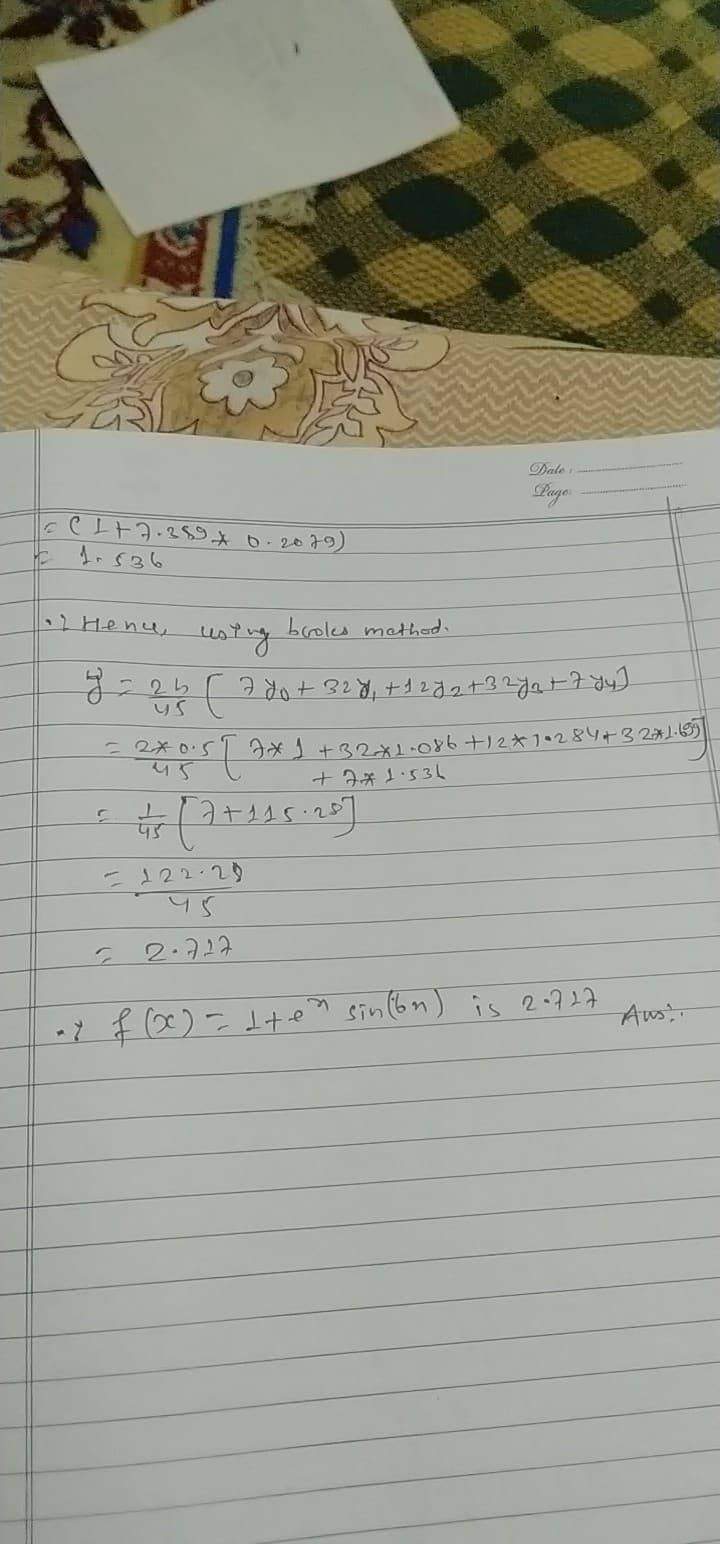 Date :
Page:
= (1+7.389 * 0.2079)
= 1.536
∴ Hence, using booles method.
y = 2h/45 [ 7y₀ + 32y₁ + 12y₂ + 32y₃ + 7y₄]
= 2*0.5/45 [ 7*1 + 32*1.086 + 12*1.284 + 32*1.659]
+ 7*1.536
= 1/45 [7+115.28]
= 122.28/45
= 2.717
∴ f(x) = 1+eˣ sin(6x) is 2.717 Ans:.